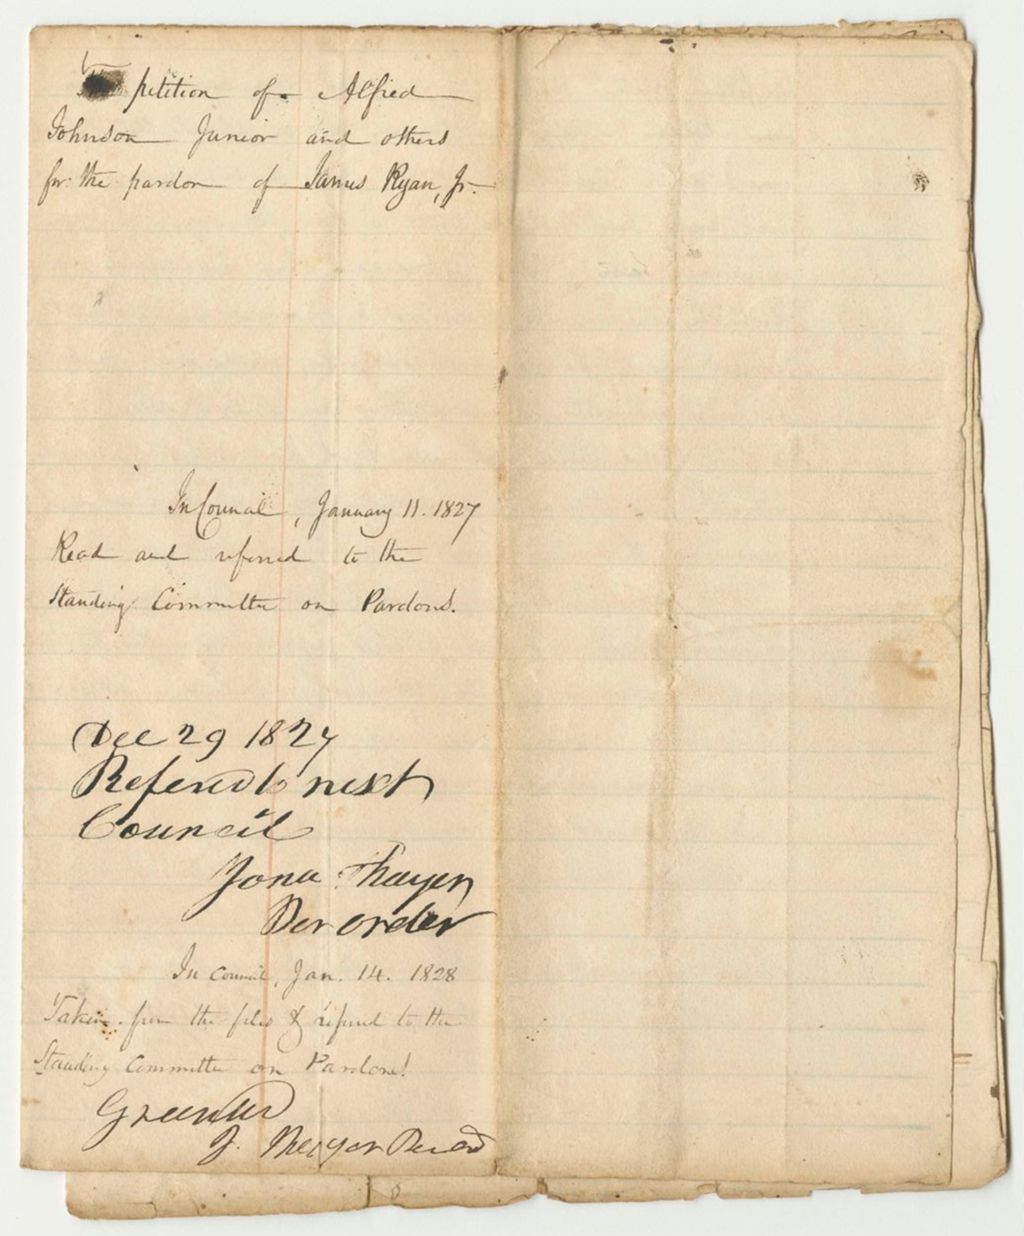 petition of Alfred
Johnson Junior and others
for the pardon of James Ryan, Jr.
In Council, January 11. 1827
Read and referred to the
Standing Committee on Pardons.
Dec 29 1827
Refered to next
Council
Jona Thayer
Per order
In Council, Jan. 14. 1828
Taken from the files & referred to the
Standing Committee on Pardons!
Granted
J. Thayer Per Ord